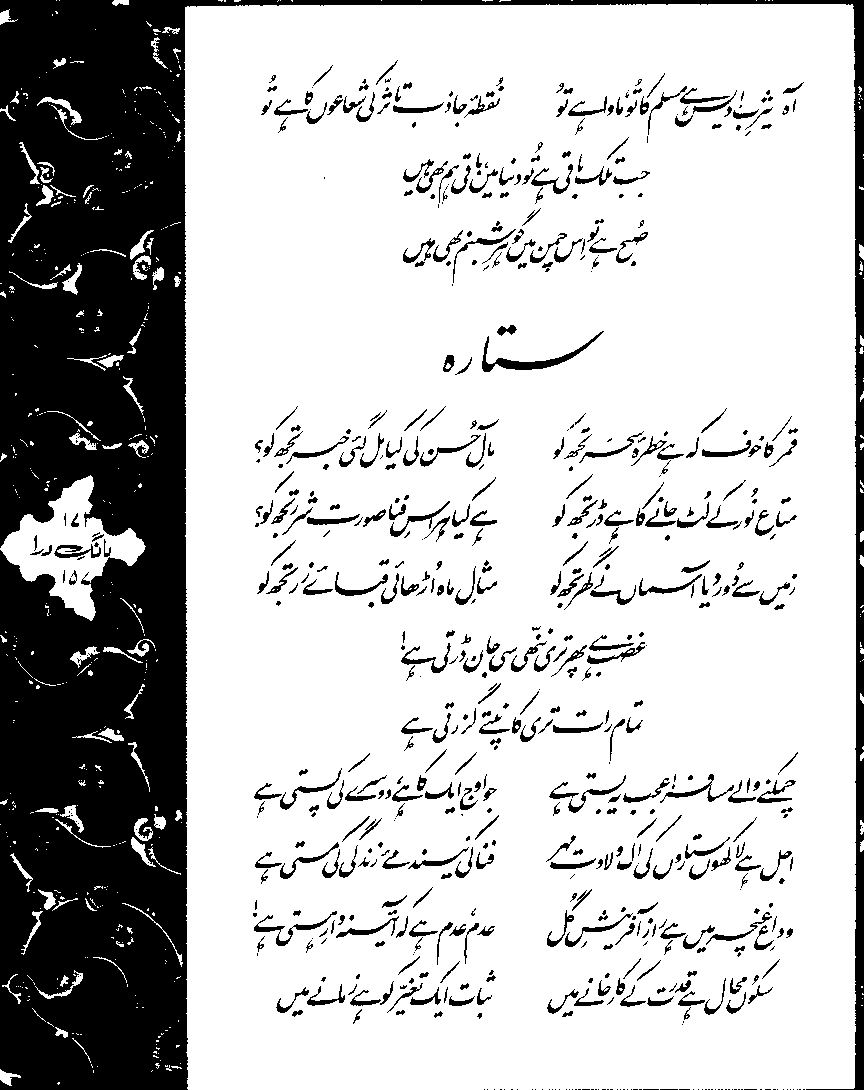 آہ یثرب! دیس ہے مسلم کا تُو، ماوا ہے تُو نُقطۂ جاذب تاثّر کی شعاعوں کا ہے تُو
جب تلک باقی ہے تُو دنیا میں، باقی ہم بھی ہیں
صُبح ہے تو اِس چمن میں گوہرِ شبنم بھی ہیں
ستارہ
قمر کا خوف کہ ہے خطرۂ سحَر تجھ کو مآلِ حُسن کی کیا مِل گئی خبر تجھ کو؟
متاعِ نُور کے لُٹ جانے کا ہے ڈر تجھ کو ہے کیا ہراسِ فنا صورتِ شرر تجھ کو؟
زمیں سے دُور دیا آسماں نے گھر تجھ کو مثالِ ماہ اُڑھائی قبائے زر تجھ کو
غضب ہے پھر تری ننھّی سی جان ڈرتی ہے!
تمام رات تری کانپتے گزرتی ہے
چمکنے والے مسافر! عجب یہ بستی ہے جو اوج ایک کا ہے، دوسرے کی پستی ہے
اجل ہے لاکھوں ستاروں کی اک ولادتِ مہر فنا کی نیند مئے زندگی کی مستی ہے
وداعِ غنچہ میں ہے رازِ آفرینشِ گُل عدم، عدم ہے کہ آئینہ دارِ ہستی ہے!
سکُوں محال ہے قدرت کے کارخانے میں ثبات ایک تغیّر کو ہے زمانے میں
۱۷۳
بانگِ درا
۱۵۷